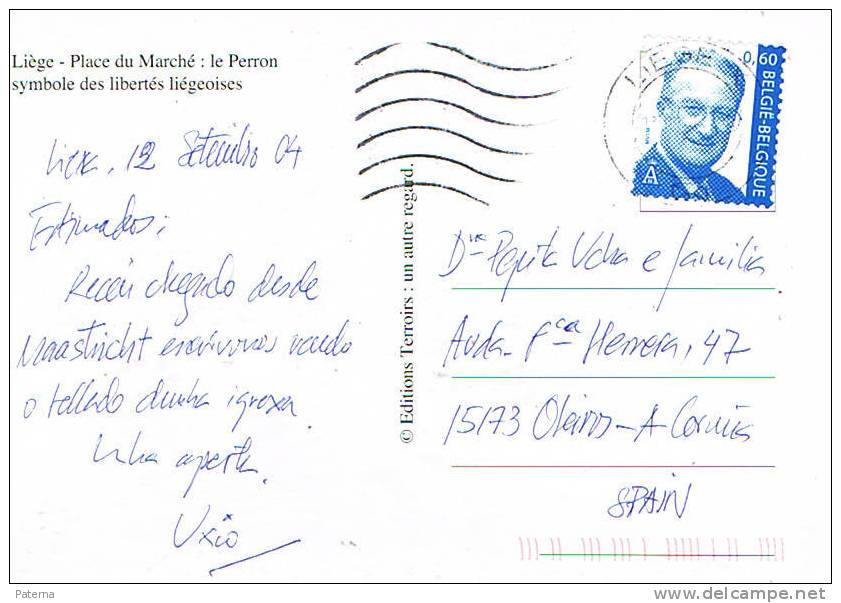 Liège - Place du Marché : le Perron
symbole des libertés liégeoises
Liexe, 12 Setembro 04
Estimados;
Recén chegado desde
Maastricht escribovos vendo
o tellado dunha igrexa
Unha aperta.
Uxío
© Editions Terroirs : un autre regard.
0,60
BELGIE-BELGIQUE
A
Pepita Ucha e familia
Avda. Herrera, 47
15173 Oleiros - A Coruña
SPAIN
Paterna
www.delcampe.net